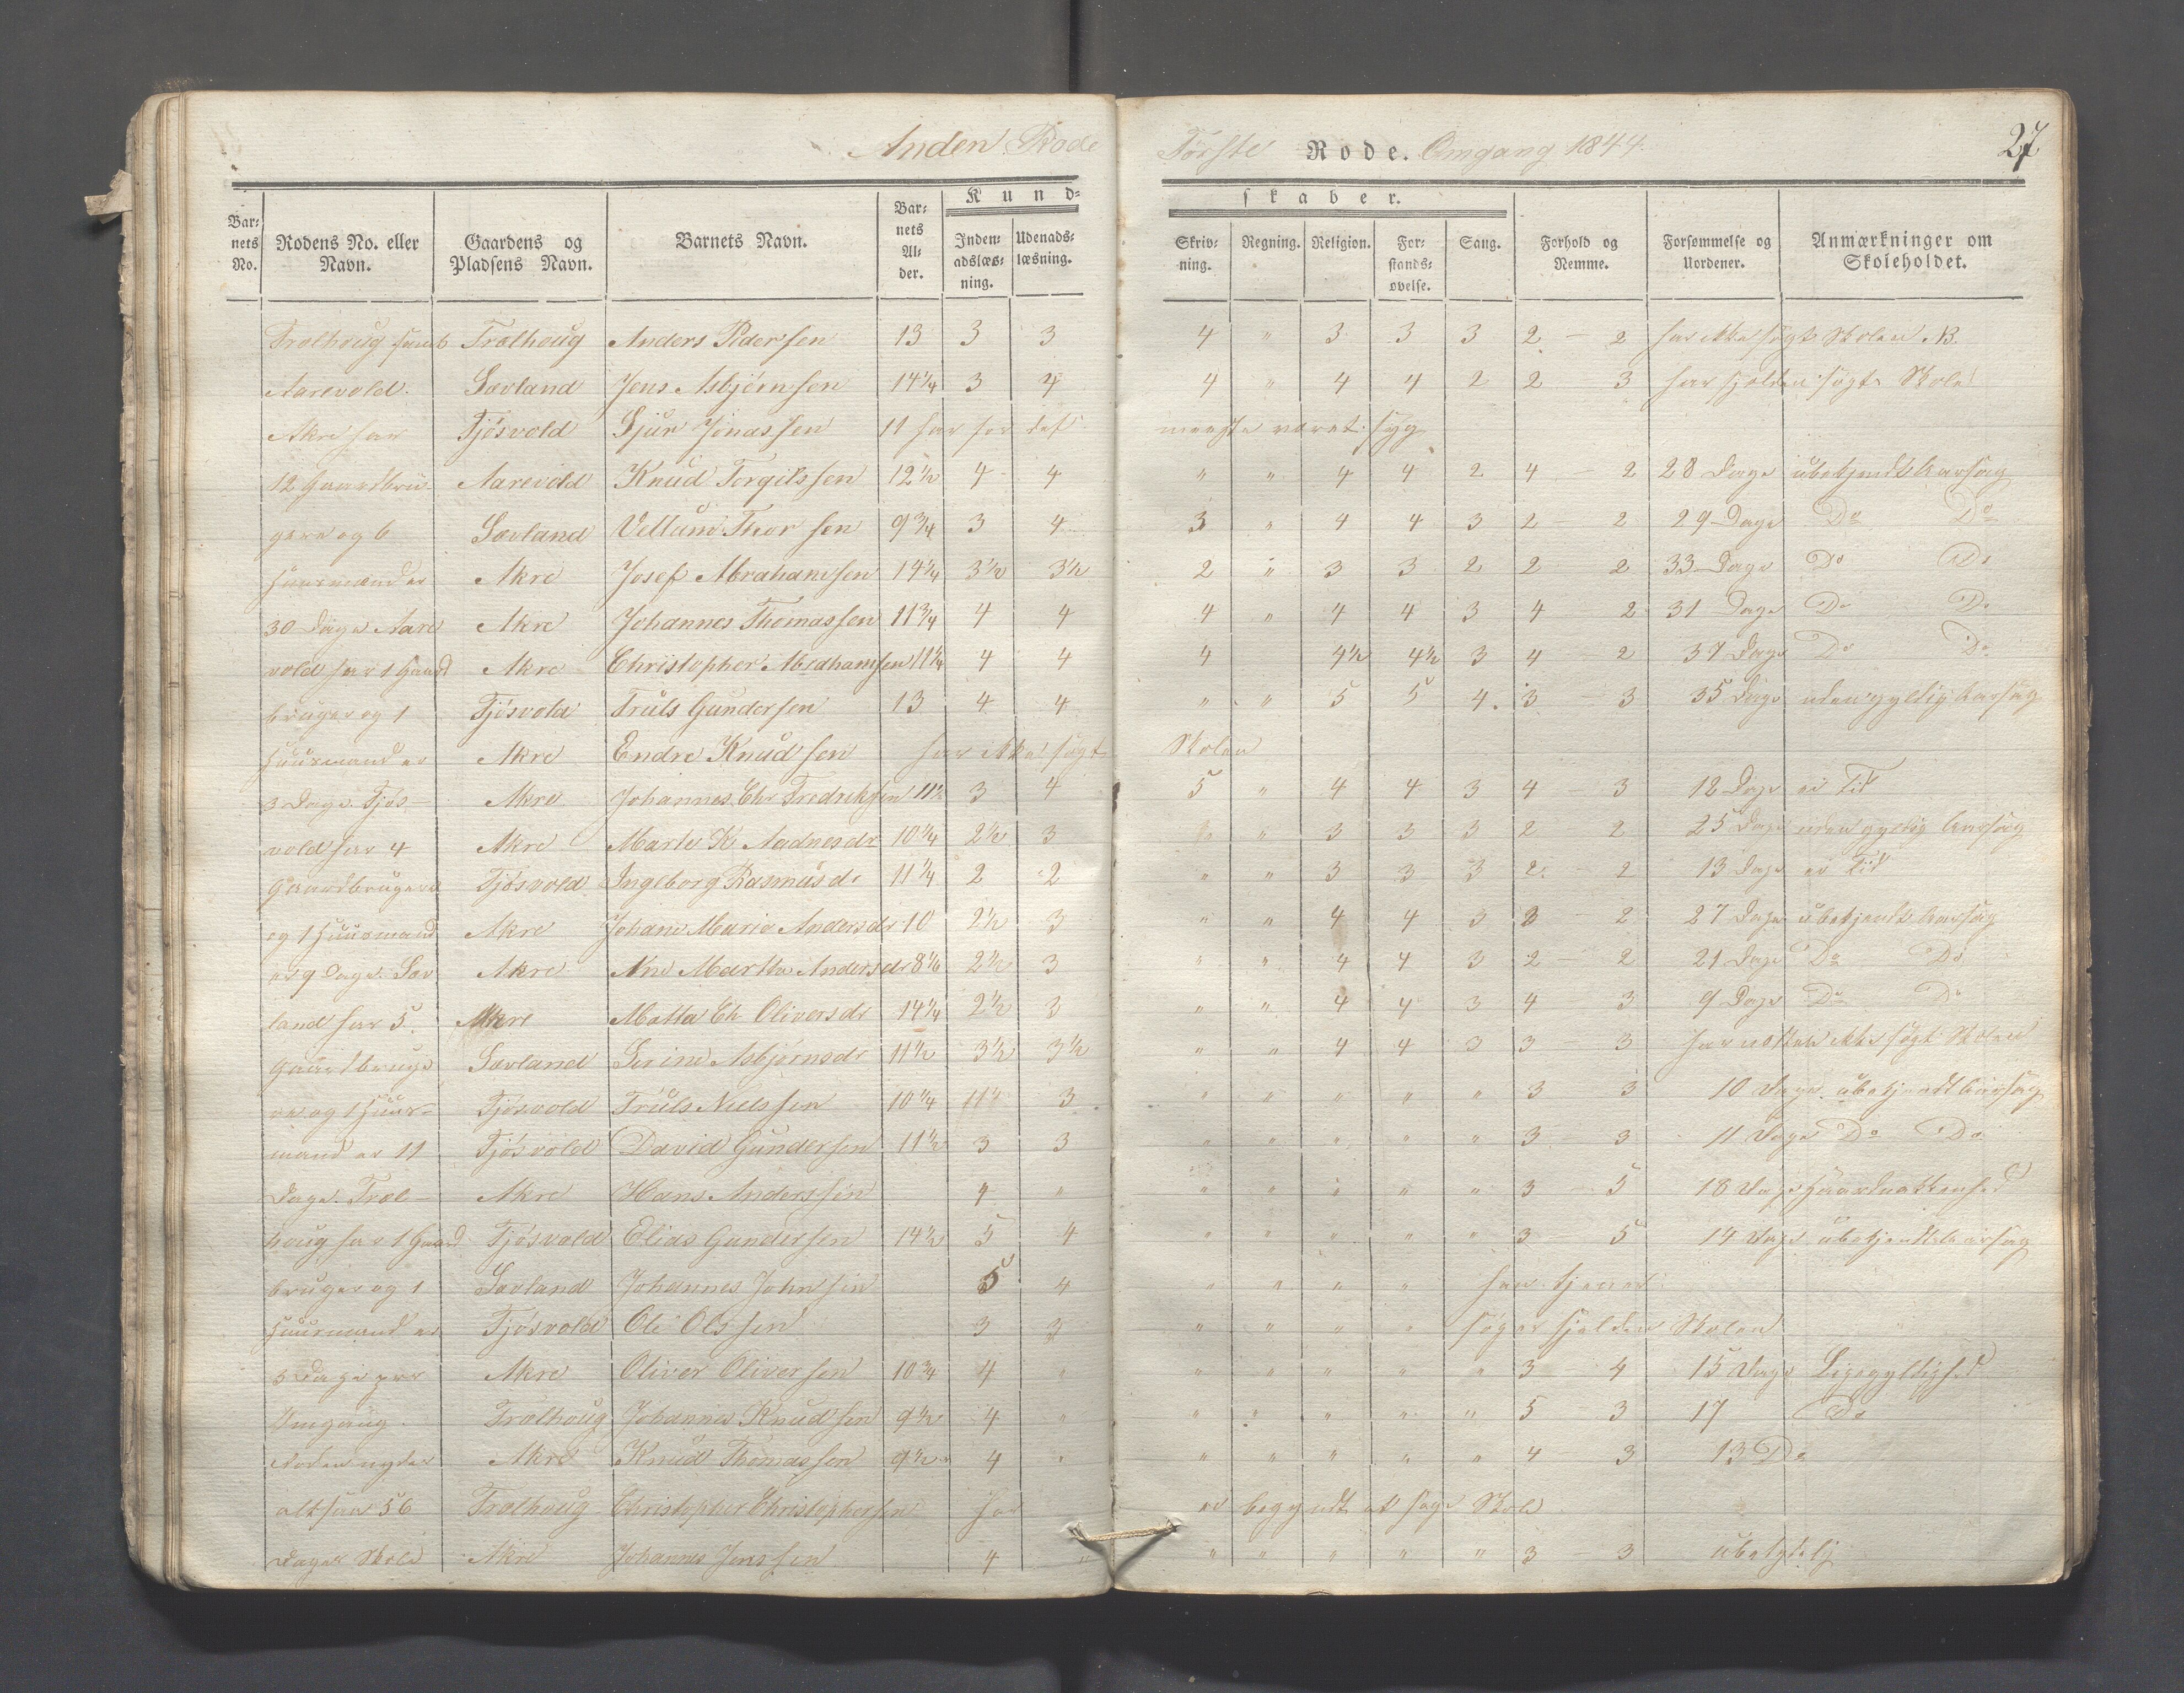 Anden Rode
Første Rode. Omgang 1844.
27
Kundskaber.
Barnets No. | Rodens No. eller Navn. | Gaardens og Pladsens Navn. | Barnets Navn. | Barnets Alder. | Indenadslæsning. | Udenadslæsning. | Skrivning. | Regning. | Religion. | Forstandsøvelse. | Sang. | Forhold og Nemme. | Forsømmelse og Uordener. | Anmærkninger om Skoleholdet.
Trælhoug samt | Trælhoug | Anders Pedersen | 13 | 3 | 3 | 4 | " | 3 | 3 | 3 | 2 - 2 | har ikke søgt Skolen
Aarevold | Sævland | Jens Asbjørnsen | 14 1/4 | 3 | 4 | 4 | " | 4 | 4 | 2 | 2 - 3 | har sjelden søgt Skole
Akre har | Tjøsvold | Sjur Jonassen | 11 har for det meeste været syg
12 Gaardbru- | Aarevold | Knud Torgilssen | 12 1/2 | 4 | 4 | " | " | 4 | 4 | 2 | 4 - 2 | 28 Dage | ubekjendt Aarsag
gere og 6 | Sævland | Thorsen | 9 3/4 | 3 | 4 | 3 | " | 4 | 4 | 3 | 2 - 2 | 29 Dage | Do Do
Huusmænd er | Akre | Josef Abrahamsen | 14 1/4 | 3 1/2 | 3 1/2 | 2 | " | 3 | 3 | 2 | 2 2 | 33 Dage | Do Do
30 Dage Aare | Akre | Johannes Thomassen | 11 3/4 | 4 | 4 | 4 | " | 4 | 4 | 3 | 4 - 2 | 31 Dage | Do Do
vold har 1 Gaard | Akre | Christopher Abrahamsen | 11 1/4 | 4 | 4 | 4 | 4 1/2 | 4 1/2 | 3 | 4 - 2 | 37 Dage | Do Do
bruger og 1 | Tjøsvold | Truls Gundersen | 13 | 4 | 4 | " | " | 5 | 5 | 4 | 3 - 3 | 35 Dage | uden gyldig Aarsag
Huusmand er | Akre | Endre Knudsen | har ikke søgt Skolen
3 Dage. Tjøs- | Akre | Johannes Chr Fredriksen | 11 1/2 | 3 | 4 | 5 | " | 4 | 4 | 3 | 4 3 | 12 Dage | ei Tid
vold har 4 | Akre | Marte K Aadnesdr | 10 1/4 | 2 1/2 | 3 | " | 3 | 3 | 3 | 2 2 | 25 Dage | uden gyldig Aarsag
Gaardbrugere | Tjøsvold | Ingeborg Rasmusdr | 11 1/4 | 2 | 2 | " | " | 3 | 3 | 3 | 2 - 2 | 13 Dage | ei Tid
og 1 Huusmand | Akre | Johane Marie Andersdr | 10 | 2 1/2 | 3 | " | " | 4 | 4 | 3 | 3 - 2 | 27 Dage | ubekjendt Aarsag
er 9 Dage. Sæv | Akre | Ane Martha Andersdr | 8 1/6 | 2 1/2 | 3 | " | " | 4 | 4 | 3 | 2 - 2 | 21 Dage | Do Do
land har 5 | Akre | Matta Ch Oliversdr | 14 1/4 | 2 1/2 | 3 | " | " | 4 | 4 | 3 | 4 - 3 | 9 Dage | Do Do
Gaardbruge | Sævland | Serine Asbjørnsdr | 11 1/2 | 3 1/2 | 3 1/2 | " | " | 4 | 4 | 3 | 3 - 3 | har næsten ikke søgt Skolen
re og 1 Huus- | Tjøsvold | Truls Nielssen | 10 1/4 | 3 | " | " | " | " | " | 3 3 | 10 Dage | ubekjendt Aarsag
mand er 11 | Tjøsvold | David Gundersen | 11 1/2 | 3 | 3 | " | " | " | " | " | 3 - 3 | 11 Dage | Do Do
Dage. Træl- | Akre | Hans Anderssen | 4 | " | " | " | " | " | " | 3 - 5 | 18 Dage
houg har 1 Gaard | Tjøsvold | Elias Gundersen | 14 1/2 | 5 | 4 | " | " | " | " | " | 3 - 5 | 14 Dage | ubekjendt Aarsag
bruger og 1 | Sævland | Johannes Johnsen | 5 | 4 | " | " | " | " | han tjener
Huusmand er | Tjøsvold | Ole Olssen | 3 | 3 | " | " | " | " | søger sjelden Skolen
3 Dage per | Akre | Oliver Oliversen | 10 3/4 | 4 | " | " | " | " | " | " | 3 - 4 | 15 Dage | Ligegyldighed
Omgang. | Trælhoug | Johannes Knudsen | 9 1/2 | 4 | " | " | " | " | " | " | 5 - 3 | 17 | Do
Roden nyder | Akre | Knud Thomassen | 9 1/2 | 4 | " | " | " | " | " | " | 4 - 3 | 13 Do
altsaa 56 | Trælhoug | Christopher Christophersen | har ei begyndt at søge Skole
Dages Skole | Akre | Johannes Jenssen | 4 | " | " | " | " | " | " | 3 - 3